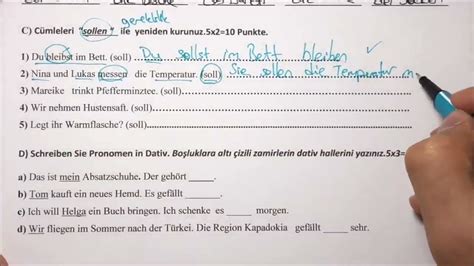 gereklilik
C) Cümleleri "sollen" ile yeniden kurunuz.5x2=10 Punkte.
1) Du bleibst im Bett. (soll) Du sollst im Bett bleiben ✓
2) Nina und Lukas messen die Temperatur. (soll) Sie sollen die Temperatur m
3) Mareike trinkt Pfefferminztee. (soll)
4) Wir nehmen Hustensaft. (soll)
5) Legt ihr Warmflasche? (soll)
D) Schreiben Sie Pronomen in Dativ. Boşluklara altı çizili zamirlerin dativ hallerini yazınız.5x3=
a) Das ist mein Absatzschuhe. Der gehört ____.
b) Tom kauft ein neues Hemd. Es gefällt ____.
c) Ich will Helga ein Buch bringen. Ich schenke es ____ morgen.
d) Wir fliegen im Sommer nach der Türkei. Die Region Kapadokia gefällt ____ sehr.